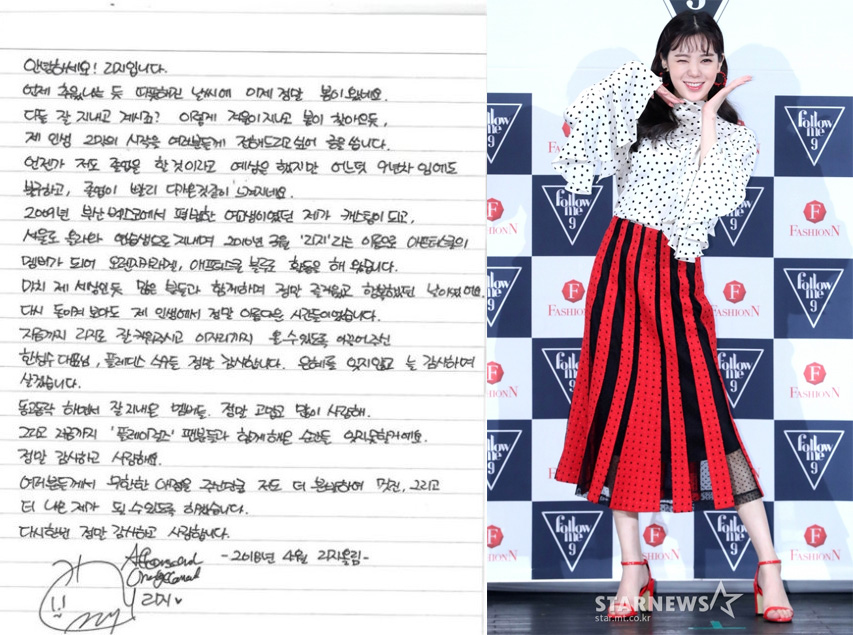 안녕하세요! 리지입니다.
언제 추웠냐는 듯 따뜻해진 날씨에 이제 정말 봄이 왔네요.
다들 잘 지내고 계시죠? 이렇게 겨울이 지나고 봄이 찾아오듯,
제 인생 2막의 시작을 여러분들께 전해드리고 싶어 글을 씁니다.
언젠가 저도 졸업을 할 것이라고 예상은 했지만 어느덧 9년차 임에도
불구하고, 졸업이 빨리 다가온것같이 느껴지네요.
2009년 부산 벡스코에서 평범한 여고생이었던 제가 캐스팅이 되고,
서울로 올라와 연습생으로 지내며 2010년 3월 '리지'라는 이름으로 애프터스쿨의
멤버가 되어 오렌지캬라멜, 애프터스쿨 블루로 활동을 해 왔습니다.
마치 제 세상인듯 많은 분들과 함께하며 정말 즐거웠고 행복했던 날이었어요.
다시 돌이켜 보아도 제 인생에서 정말 아름다운 시간들이었습니다.
지금까지 리지로 잘 키워주시고 이자리까지 올 수 있도록 이끌어주신
한성수 대표님, 플레디스 식구들 정말 감사합니다. 은혜를 잊지않고 늘 감사하며
살겠습니다.
동고동락 하면서 잘 지내온 멤버들. 정말 고맙고 많이 사랑해.
그리고 지금까지 '플레이걸즈' 팬분들과 함께 해온 순간들 잊지못할거예요.
정말 감사하고 사랑해요.
여러분들께서 무한한 애정을 주신만큼 저도 더 분발하여 멋진, 그리고
더 나은 제가 될 수 있도록 하겠습니다.
다시한번 정말 감사하고 사랑합니다.
-2018년 4월 리지올림-
Afterschool
Orange Caramel
리지♥
follow me 9
FASHIONN
STARNEWS
star.mt.co.kr